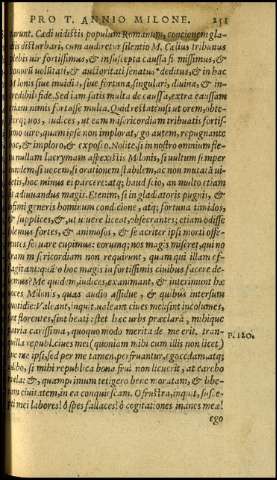 PRO T. ANNIO MILONE. 251
runt. Cædi vidistis populum Romanum, concionem gla-
dis disturbari, cum audiretur silentio M. Cælius tribunus
plebis vir fortissimus, & in suscepta caussa firmissimus, &
bonorū volūtati, & auctoritati senatus deditus, & in hac
Milonis siue inuidia, siue fortuna, singulari, diuina, & in-
credibili fide. Sed iam satis multa de caussa, extra caussam
etiam nimis fortasse multa. Quid restat, nisi ut orem, obte-
strorq; vos, iudices, ut eam misericordiam tribuatis fortis-
simo viro, quam ipse non implorat, ego autem, repugnante
hoc, & imploro, & exposco. Nolite, si in nostro omnium fle-
tu nullam lacrymam aspexistis Milonis, si vultum semper
eundem, si vocem, si orationem stabilem, ac non mutatā vi-
detis, hoc minus ei parcere: atq; haud scio, an multo etiam
sit adiuuandus magis. Etenim, si in gladiatoriis pugnis, &
infimi generis hominum conditione, atq; fortuna timidos,
& supplices, & ut viuere liceat, obsecrantes, etiam odisse
solemus: fortes, & animosos, & se acriter ipsi morti offe-
rentes seruare cupimus: eorumq; nos magis miseret, qui no
stram misericordiam non requirunt, quam qui illam ef-
flagitant: quāto hoc magis in fortissimis ciuibus facere de-
bemus? Me quidem, iudices, exanimant, & interimunt hæ
voces Milonis, quas audio assidue, & quibus intersum
quotidie. Valeant, inquit, valeant ciues mei, sint incolumes,
sint florentes, sint beati: stet hæc urbs præclara, mihique
patria carissima, quoquo modo merita de me erit, tran-
quilla republ. ciues mei (quoniam mihi cum illis non licet)
sine me ipsi, sed per me tamen, perfruantur, ego cedam atq;
abibo, si mihi republica bona frui non licuerit, at carebo
mala: &, quam primum tetigero bene moratam, & libe-
ram ciuitatem, in ea conquiescam. O frustra, inquit, susce-
pti mei labores! ô spes fallaces! ô cogitationes inanes meæ!
ego